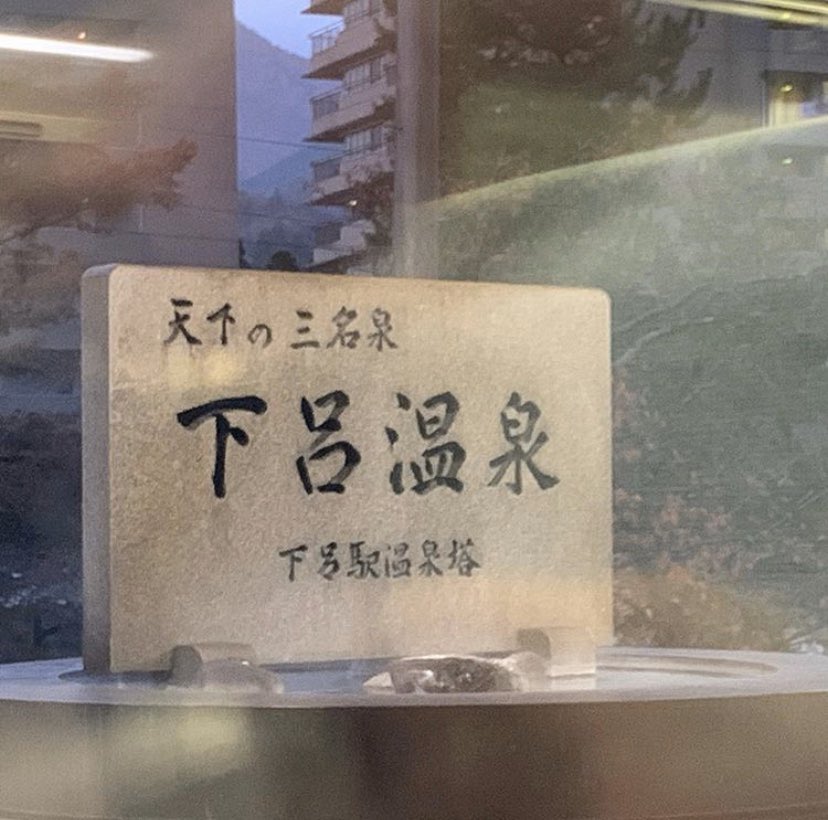 天下の三名泉
下呂温泉
下呂駅温泉塔